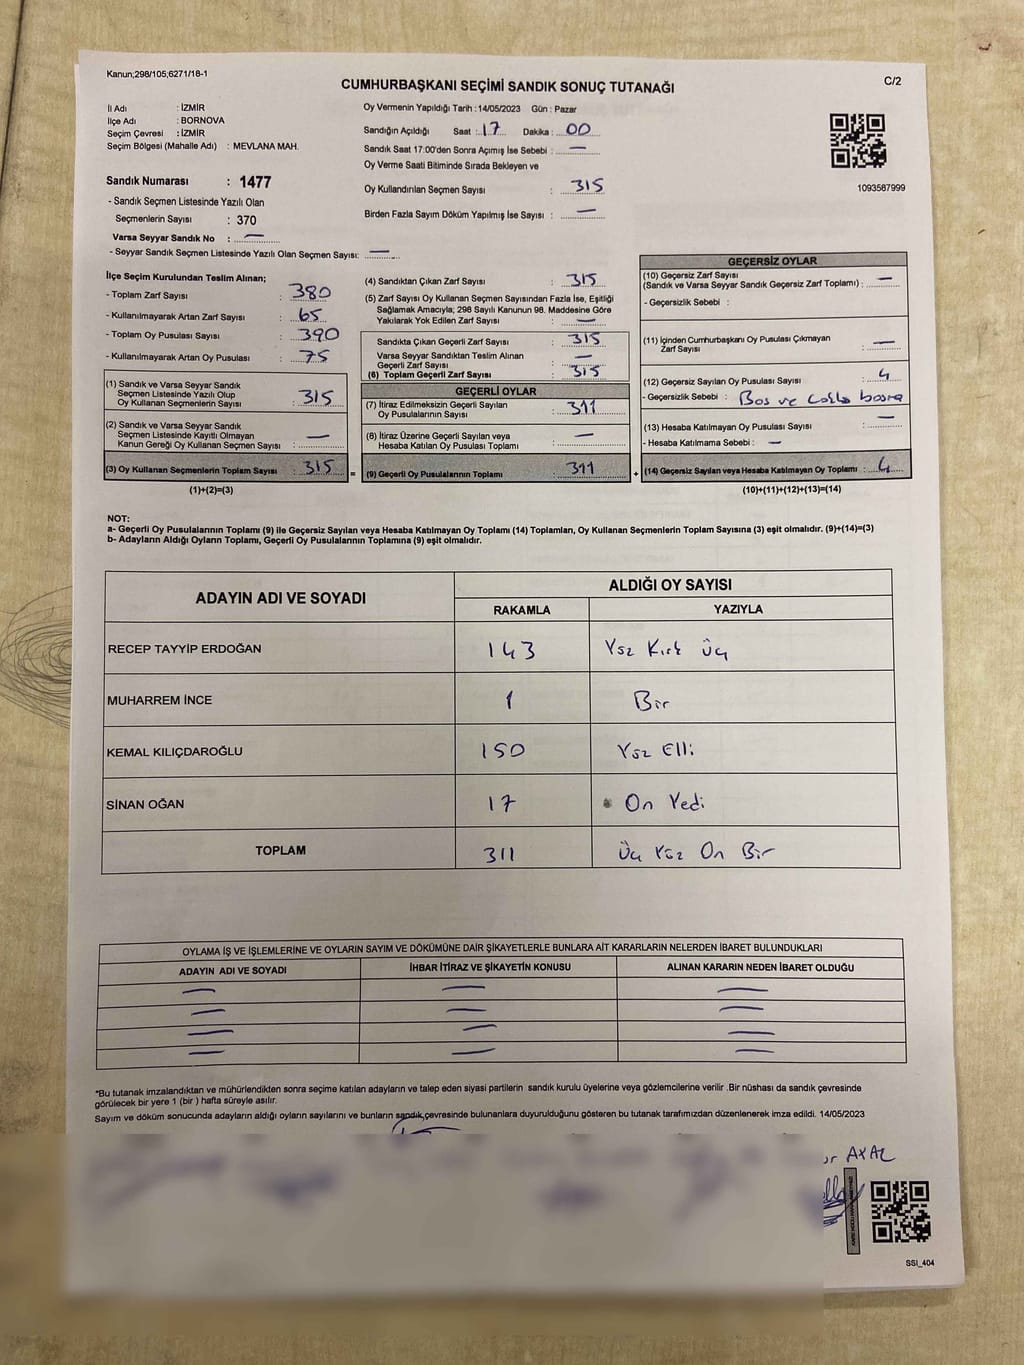 Kanun;298/105;6271/18-1
C/2
CUMHURBAŞKANI SEÇİMİ SANDIK SONUÇ TUTANAĞI
İl Adı : İZMİR
İlçe Adı : BORNOVA
Seçim Çevresi : İZMİR
Seçim Bölgesi (Mahalle Adı) : MEVLANA MAH.
Sandık Numarası : 1477
- Sandık Seçmen Listesinde Yazılı Olan
Seçmenlerin Sayısı : 370
Varsa Seyyar Sandık No : —
- Seyyar Sandık Seçmen Listesinde Yazılı Olan Seçmen Sayısı: —
Oy Vermenin Yapıldığı Tarih : 14/05/2023 Gün : Pazar
Sandığın Açıldığı Saat : 17 Dakika : 00
Sandık Saat 17:00'den Sonra Açımış İse Sebebi : —
Oy Verme Saati Bitiminde Sırada Bekleyen ve
Oy Kullandırılan Seçmen Sayısı : 315
Birden Fazla Sayım Döküm Yapılmış İse Sayısı : —
1093587999
İlçe Seçim Kurulundan Teslim Alınan;
- Toplam Zarf Sayısı : 380
- Kullanılmayarak Artan Zarf Sayısı : 65
- Toplam Oy Pusulası Sayısı : 390
- Kullanılmayarak Artan Oy Pusulası : 75
(1) Sandık ve Varsa Seyyar Sandık
Seçmen Listesinde Yazılı Olup
Oy Kullanan Seçmenlerin Sayısı : 315
(2) Sandık ve Varsa Seyyar Sandık
Seçmen Listesinde Kayıtlı Olmayan
Kanun Gereği Oy Kullanan Seçmen Sayısı : —
(3) Oy Kullanan Seçmenlerin Toplam Sayısı : 315 =
(1)+(2)=(3)
(4) Sandıktan Çıkan Zarf Sayısı : 315
(5) Zarf Sayısı Oy Kullanan Seçmen Sayısından Fazla İse, Eşitliği
Sağlamak Amacıyla; 298 Sayılı Kanunun 98. Maddesine Göre
Yakılarak Yok Edilen Zarf Sayısı : —
Sandıkta Çıkan Geçerli Zarf Sayısı : 315
Varsa Seyyar Sandıktan Teslim Alınan
Geçerli Zarf Sayısı : —
(6) Toplam Geçerli Zarf Sayısı : 315
GEÇERLİ OYLAR
(7) İtiraz Edilmeksizin Geçerli Sayılan
Oy Pusulalarının Sayısı : 311
(8) İtiraz Üzerine Geçerli Sayılan veya
Hesaba Katılan Oy Pusulası Sayısı : —
(9) Geçerli Oy Pusulalarının Toplamı : 311 +
GEÇERSİZ OYLAR
(10) Geçersiz Zarf Sayısı
(Sandık ve Varsa Seyyar Sandık Geçersiz Zarf Toplamı) : —
- Geçersizlik Sebebi :
(11) İçinden Cumhurbaşkanı Oy Pusulası Çıkmayan
Zarf Sayısı : —
(12) Geçersiz Sayılan Oy Pusulası Sayısı : 4
- Geçersizlik Sebebi : Bos ve
(13) Hesaba Katılmayan Oy Pusulası Sayısı : —
- Hesaba Katılmama Sebebi : —
(14) Geçersiz Sayılan veya Hesaba Katılmayan Oy Toplamı : 4
(10)+(11)+(12)+(13)=(14)
NOT:
a- Geçerli Oy Pusulalarının Toplamı (9) ile Geçersiz Sayılan veya Hesaba Katılmayan Oy Toplamı (14) Toplamları, Oy Kullanan Seçmenlerin Toplam Sayısına (3) eşit olmalıdır. (9)+(14)=(3)
b- Adayların Aldığı Oyların Toplamı, Geçerli Oy Pusulalarının Toplamına (9) eşit olmalıdır.
ADAYIN ADI VE SOYADI ALDIĞI OY SAYISI
RAKAMLA YAZIYLA
RECEP TAYYİP ERDOĞAN 143 Yüz Kırk Üç
MUHARREM İNCE 1 Bir
KEMAL KILIÇDAROĞLU 150 Yüz Elli
SİNAN OĞAN 17 On Yedi
TOPLAM 311 Üç Yüz On Bir
OYLAMA İŞ VE İŞLEMLERİNE VE OYLARIN SAYIM VE DÖKÜMÜNE DAİR ŞİKAYETLERLE BUNLARA AİT KARARLARIN NELERDEN İBARET BULUNDUKLARI
ADAYIN ADI VE SOYADI İHBAR İTİRAZ VE ŞİKAYETİN KONUSU ALINAN KARARIN NEDEN İBARET OLDUĞU
— — —
— — —
— — —
— — —
*Bu tutanak imzalandıktan ve mühürlendikten sonra seçime katılan adayların ve talep eden siyasi partilerin sandık kurulu üyelerine veya gözlemcilerine verilir .Bir nüshası da sandık çevresinde
görülecek bir yere 1 (bir ) hafta süreyle asılır.
Sayım ve döküm sonucunda adayların aldığı oyların sayılarını ve bunların sandık çevresinde bulunanlara duyurulduğunu gösteren bu tutanak tarafımızdan düzenlenerek imza edildi. 14/05/2023
SSI_404